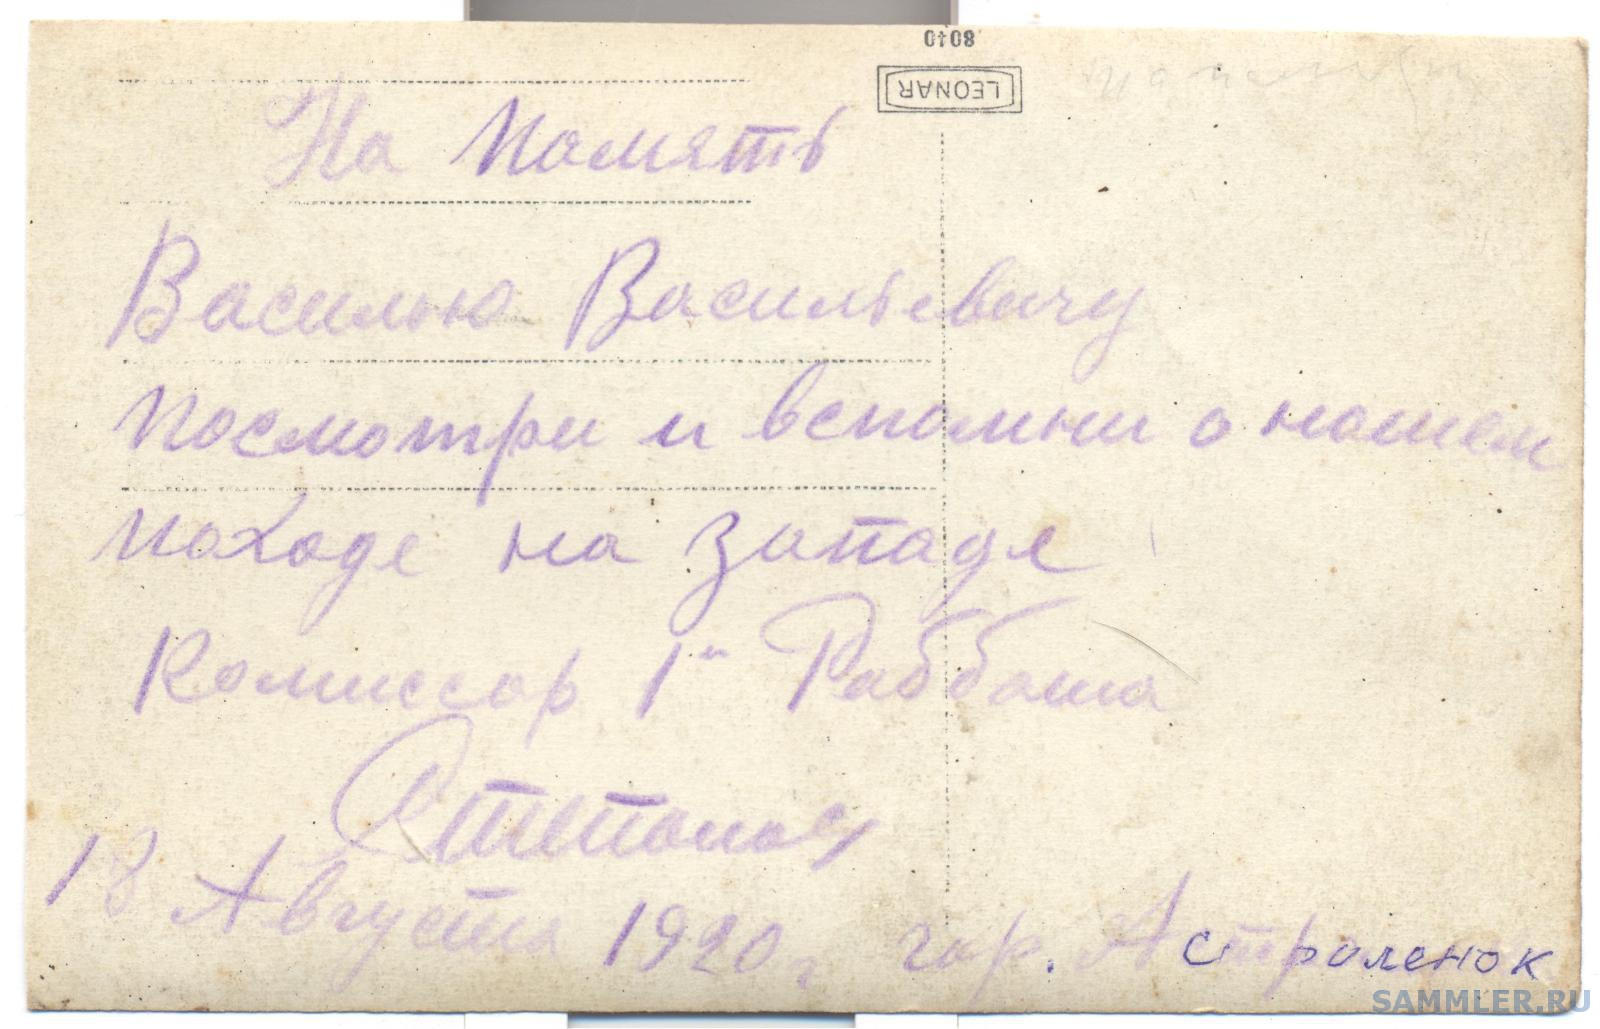 8040
LEONAR
На Память
Василью Васильевичу
посмотри и вспомни о нашем
походе на западе
Комиссар 1го Раббата
Степанов
18 Августа 1920 г. гор. Астраленок
SAMMLER.RU